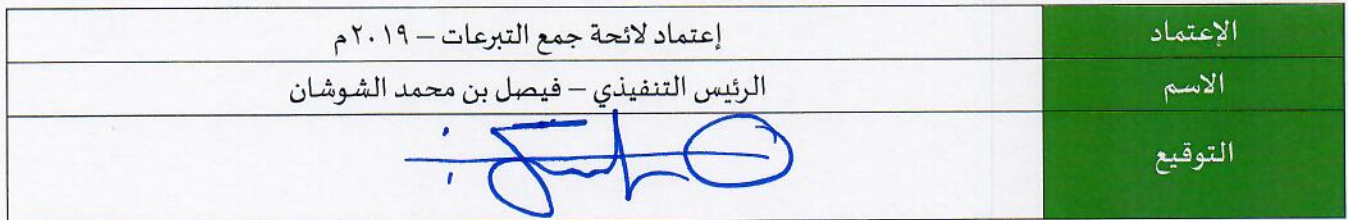 الإعتماد إعتماد لائحة جمع التبرعات – ٢٠١٩م
الاسم الرئيس التنفيذي – فيصل بن محمد الشوشان
التوقيع